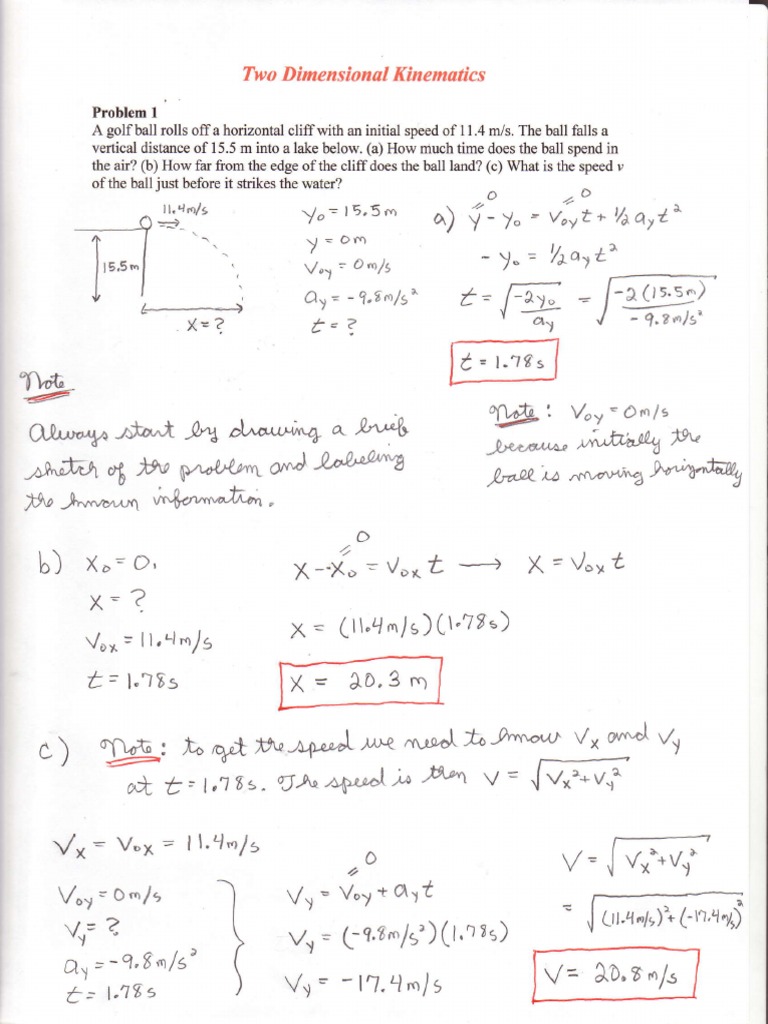 Two Dimensional Kinematics
Problem 1
A golf ball rolls off a horizontal cliff with an initial speed of 11.4 m/s. The ball falls a
vertical distance of 15.5 m into a lake below. (a) How much time does the ball spend in
the air? (b) How far from the edge of the cliff does the ball land? (c) What is the speed v
of the ball just before it strikes the water?
11.4 m/s
15.5 m
X = ?
y₀ = 15.5 m
y = 0 m
V₀y = 0 m/s
ay = -9.8 m/s²
t = ?
0 0
a) y - y₀ = V₀y t + 1/2 ay t²
- y₀ = 1/2 ay t²
t = √(-2y₀/ay) = √(-2(15.5m)/-9.8m/s²)
t = 1.78 s
Note
Always start by drawing a brief
sketch of the problem and labeling
the known information.
Note: V₀y = 0 m/s
because initially the
ball is moving horizontally
b) X₀ = 0,
X = ?
V₀x = 11.4 m/s
t = 1.78 s
0
X - X₀ = V₀x t → X = V₀x t
X = (11.4 m/s)(1.78 s)
X = 20.3 m
c) Note: to get the speed we need to know Vx and Vy
at t = 1.78 s. The speed is then V = √(Vx² + Vy²)
Vx = V₀x = 11.4 m/s
V₀y = 0 m/s
Vy = ?
ay = -9.8 m/s²
t = 1.78 s
0
Vy = V₀y + ay t
Vy = (-9.8 m/s²)(1.78 s)
Vy = -17.4 m/s
V = √(Vx² + Vy²)
= √((11.4 m/s)² + (-17.4 m/s)²)
V = 20.8 m/s